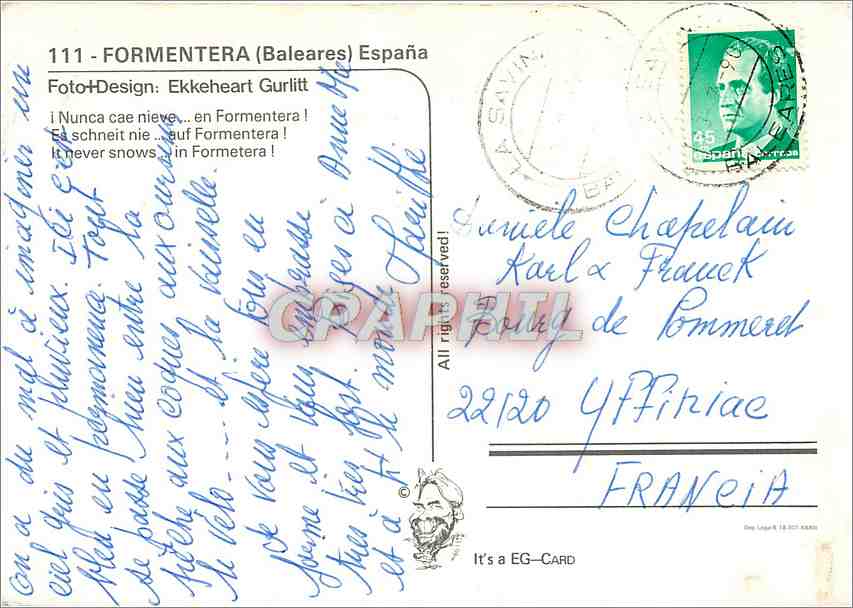 111 - FORMENTERA (Baleares) España
Foto+Design: Ekkeheart Gurlitt
¡ Nunca cae nieve ... en Formentera !
Es schneit nie ... auf Formentera !
It never snows ... in Formetera !
On a du mal à imaginer un
ciel gris et pluvieux. Ici c'est
bleu en permanence. Tout
se passe bien entre la
pêche aux coques aux oursins,
le vélo ---- et la vaisselle.
Je vous espère tous en
forme et vous embrasse
très très fort. Bises à Anne Me
et à tt le monde
All rights reserved!
LA SAVINA
BALEARES
45
españa
Daniele Chapelain
Karl & Franck
Bourg de Pommeret
22120 Yffiniac
FRANCIA
GRAPHIL
©
It's a EG-CARD